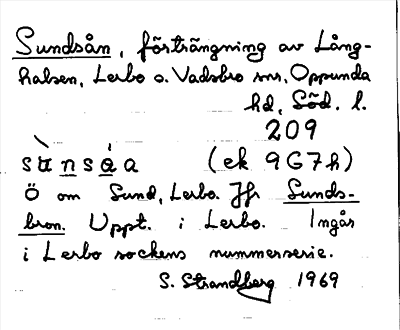 Sundsån, förträngning av Lång-
halsen, Lerbo o. Vadsbro snr, Oppunda
hd, Söd. l.
209
sùnsá̱a (ek 9G7h)
Ö om Sund, Lerbo. Jfr Sunds-
bron. Uppt. i Lerbo. Ingår
i Lerbo sockens nummerserie.
S. Strandberg 1969